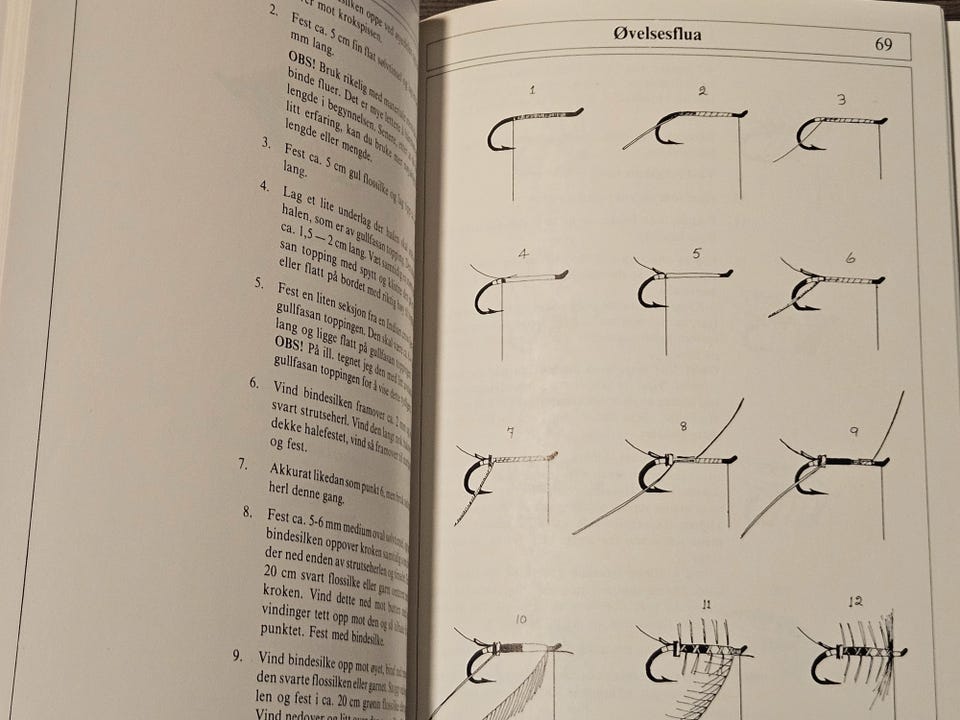 mot krokspissen.
2. Fest ca. 5 cm fin flat sølvtinsel og
mm lang.
OBS! Bruk rikelig med
binde fluer. Det er mye lettere å
lengde i begynnelsen. Senere, etter
litt erfaring, kan du bruke mer
lengde eller mengde.
3. Fest ca. 5 cm gul flossilke og
lang.
4. Lag et lite underlag der halen skal
halen, som er av gullfasan topping.
ca. 1,5 — 2 cm lang. Væt
san topping med spytt og
eller flatt på bordet med riktig
5. Fest en liten seksjon fra en Indian
gullfasan toppingen. Den skal være
lang og ligge flatt på gullfasan toppingen
OBS! På ill. tegnet jeg den med litt
gullfasan toppingen for å vise dette
6. Vind bindesilken framover ca. 2 mm
svart strutseherl. Vind den langt
dekke halefestet, vind så framover til
og fest.
7. Akkurat likedan som punkt 6, men
herl denne gang.
8. Fest ca. 5-6 mm medium oval sølvtinsel
bindesilken oppover kroken samtidig
der ned enden av strutseherlen og
20 cm svart flossilke eller garn
kroken. Vind dette ned mot
vindinger tett opp mot den og så tilbake
punktet. Fest med bindesilke.
9. Vind bindesilke opp mot øyet, bind
den svarte flossilken eller garnet.
len og fest i ca. 20 cm grønn
Vind nedover og litt over
Øvelsesflua
69
1 2 3
4 5 6
7 8 9
10 11 12